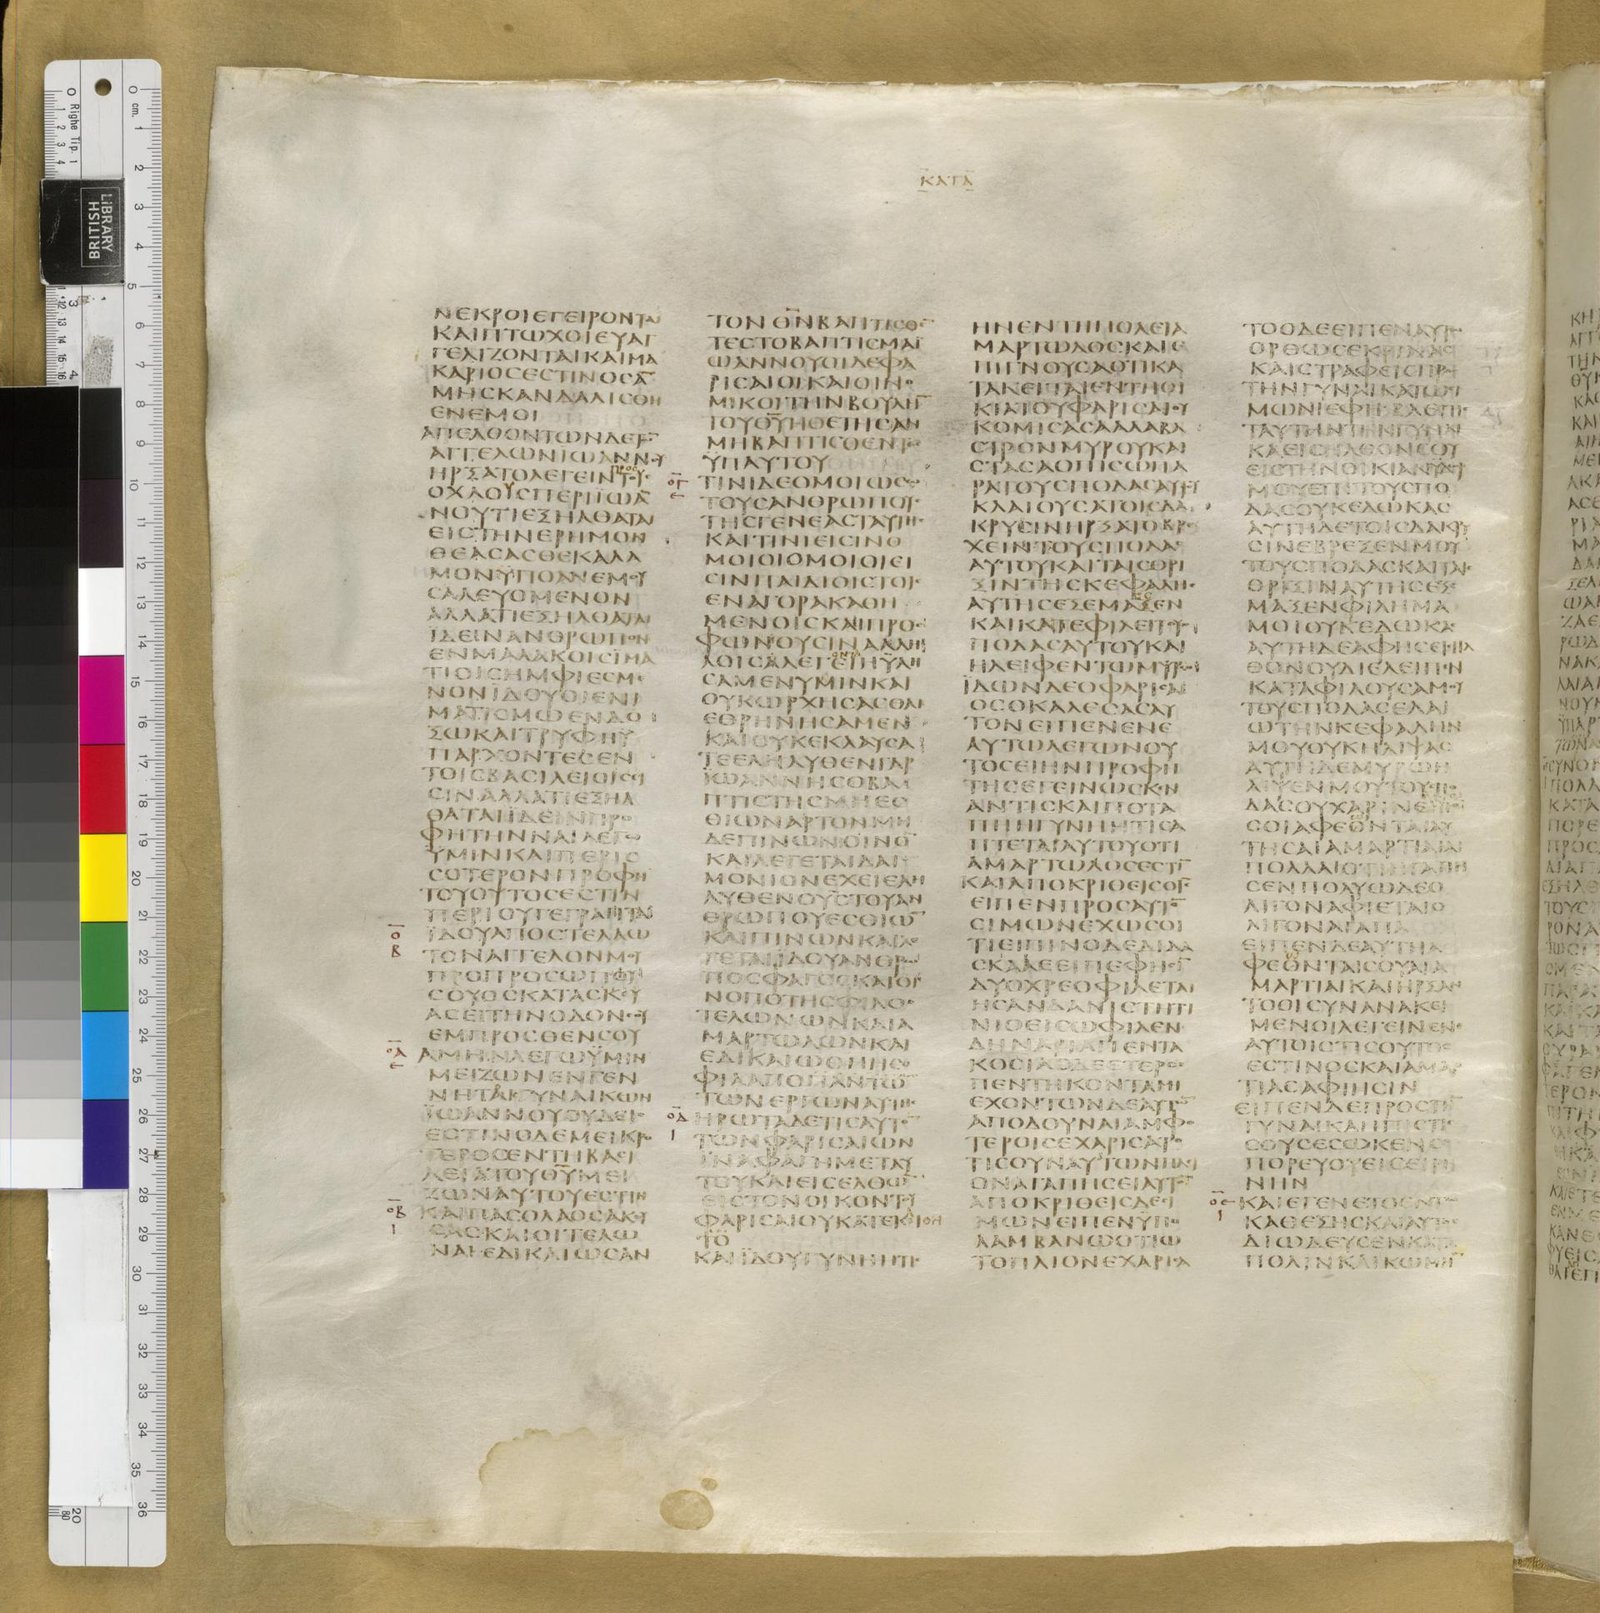 ΚΑΤΑ
ΝΕΚΡΟΙΕΓΕΙΡΟΝΤΑΙ
ΚΑΙΠΤΩΧΟΙΕΥΑΓ
ΓΕΛΙΖΟΝΤΑΙΚΑΙΜΑ
ΚΑΡΙΟCΕCΤΙΝΟCΑ̅
ΜΗCΚΑΝΔΑΛΙCΘΗ
ΕΝΕΜΟΙ
ΑΠΕΛΘΟΝΤΩΝΔΕΤ̅
ΑΓΓΕΛΩΝΙΩΑΝΝΟΥ
ΗΡΞΑΤΟΛΕΓΕΙΝ
ΟΧΛΟΥCΠΕΡΙΙΩΑ̅
ΝΟΥΤΙΕΞΗΛΘΑΤΑΙ
ΕΙCΤΗΝΕΡΗΜΟΝ
ΘΕΑCΑCΘΕΚΑΛΑ
ΜΟΝΫΠΟΑΝΕΜΟΥ
CΑΛΕΥΟΜΕΝΟΝ
ΑΛΛΑΤΙΕΞΗΛΘΑΤΑΙ
ΪΔΕΙΝΑΝΘΡΩΠΟΝ
ΕΝΜΑΛΑΚΟΙCΙΜΑ
ΤΙΟΙCΗΜΦΙΕCΜΕ
ΝΟΝΪΔΟΥΟΙΕΝΙ
ΜΑΤΙCΜΩΕΝΔΟ
ΞΩΚΑΙΤΡΥΦΗΫ
ΠΑΡΧΟΝΤΕCΕΝ
ΤΟΙCΒΑCΙΛΕΙΟΙCΕΙ
CΙΝΑΛΛΑΤΙΕΞΗΛ
ΘΑΤΑΙΪΔΕΙΝΠΡΟ
ΦΗΤΗΝΝΑΙΛΕΓΩ
ΫΜΙΝΚΑΙΠΕΡΙC
CΟΤΕΡΟΝΠΡΟΦΗ
ΤΟΥΟΥΤΟCΕCΤΙΝ
ΠΕΡΙΟΥΓΕΓΡΑΠΤΑΙ
ΟΒ
ΪΔΟΥΑΠΟCΤΕΛΛΩ
ΤΟΝΑΓΓΕΛΟΝΜΟΥ
ΠΡΟΠΡΟCΩΠΟΥ
CΟΥΟCΚΑΤΑCΚΕΥ
ΑCΕΙΤΗΝΟΔΟΝCΟΥ
ΕΜΠΡΟCΘΕΝCΟΥ
ΟΑ
ΑΜΗΝΛΕΓΩΫΜΙΝ
ΜΕΙΖΩΝΕΝΓΕΝ
ΝΗΤΟΙCΓΥΝΑΙΚΩΝ
ΪΩΑΝΝΟΥΟΥΔΕΙC
ΕCΤΙΝΟΔΕΜΕΙΚΡΟ
ΤΕΡΟCΕΝΤΗΒΑCΙ
ΛΕΙΑΤΟΥΘ̅Υ̅ΜΕΙ
ΖΩΝΑΥΤΟΥΕCΤΙΝ
ΟΒ
Ι
ΚΑΙΠΑCΟΛΑΟCΑΚΟΥ
CΑCΚΑΙΟΙΤΕΛΩ
ΝΑΙΕΔΙΚΑΙΩCΑΝ
ΤΟΝΘ̅Ν̅ΒΑΠΤΙCΘΕ̅
ΤΕCΤΟΒΑΠΤΙCΜΑΪ
ΩΑΝΝΟΥΟΙΔΕΦΑ
ΡΙCΑΙΟΙΚΑΙΟΙΝΟ
ΜΙΚΟΙΤΗΝΒΟΥΛΗ̅
ΤΟΥΘ̅Υ̅ΗΘΕΤΗCΑΝ
ΜΗΒΑΠΤΙCΘΕΝΤΕC
ΫΠΑΥΤΟΥ
ΟΓ
ΤΙΝΙΔΕΟΜΟΙΩCΩ
ΤΟΥCΑΝΘΡΩΠΟΥC
ΤΗCΓΕΝΕΑCΤΑΥΤΗC
ΚΑΙΤΙΝΙΕΙCΙΝΟ
ΜΟΙΟΙΟΜΟΙΟΙΕΙ
CΙΝΠΑΙΔΙΟΙCΤΟΙC
ΕΝΑΓΟΡΑΚΑΘΗ
ΜΕΝΟΙCΚΑΙΠΡΟC
ΦΩΝΟΥCΙΝΑΛΛΗ
ΛΟΙCΑΛΕΓΕΙΗΥΛΗ
CΑΜΕΝΫΜΙΝΚΑΙ
ΟΥΚΩΡΧΗCΑCΘΑΙ
ΕΘΡΗΝΗCΑΜΕΝ
ΚΑΙΟΥΚΕΚΛΑΥCΑ
ΤΕΕΛΗΛΥΘΕΝΓΑΡ
ΪΩΑΝΝΗCΟΒΑΠ
ΠΤΙCΤΗCΜΗΕC
ΘΙΩΝΑΡΤΟΝΜΗ
ΔΕΠΙΝΩΝΟΙΝΟ̅
ΚΑΙΛΕΓΕΤΑΙΔΑΙ
ΜΟΝΙΟΝΕΧΕΙΕΛΗ
ΛΥΘΕΝΟΥCΤΟΥΑΝ
ΘΡΩΠΟΥΕCΘΙΩ̅
ΚΑΙΠΙΝΩΝΚΑΙΛΕ
ΓΕΤΑΙΪΔΟΥΑΝΘΡΩ
ΠΟCΦΑΓΟCΚΑΙΟΙ
ΝΟΠΟΤΗCΦΙΛΟC
ΤΕΛΩΝΩΝΚΑΙΑ
ΜΑΡΤΩΛΩΝΚΑΙ
ΕΔΙΚΑΙΩΘΗΗCΟ
ΦΙΑΑΠΟΠΑΝΤΩ̅
ΤΩΝΕΡΓΩΝΑΥΤΗC
ΟΔ
Ι
ΗΡΩΤΑΔΕΤΙCΑΥΤΟ̅
ΤΩΝΦΑΡΙCΑΙΩΝ
ΪΝΑΦΑΓΗΜΕΤΑΥ
ΤΟΥΚΑΙΕΙCΕΛΘΩ̅
ΕΙCΤΟΝΟΙΚΟΝΤΟΥ
ΦΑΡΙCΑΙΟΥΚΑΤΕΚΛΙΘΗ
ΚΑΙΪΔΟΥΓΥΝΗΗΤΙC
ΗΝΕΝΤΗΠΟΛΕΙΑ
ΜΑΡΤΩΛΟCΚΑΙΕ
ΠΙΓΝΟΥCΑΟΤΙΚΑ
ΤΑΚΕΙΤΑΙΕΝΤΗΟΙ
ΚΙΑΤΟΥΦΑΡΙCΑΙΟΥ
ΚΟΜΙCΑCΑΑΛΑΒΑ
CΤΡΟΝΜΥΡΟΥΚΑΙ
CΤΑCΑΟΠΙCΩΠΑ
ΡΑΤΟΥCΠΟΔΑCΑΥΤΟΥ
ΚΛΑΙΟΥCΑΤΟΙCΔΑ
ΚΡΥCΙΝΗΡΞΑΤΟΒΡΕ
ΧΕΙΝΤΟΥCΠΟΔΑC
ΑΥΤΟΥΚΑΙΤΑΙCΘΡΙ
ΞΙΝΤΗCΚΕΦΑΛΗC
ΑΥΤΗCΕΞΕΜΑΞΕΝ
ΚΑΙΚΑΤΕΦΙΛΕΙΤΟΥC
ΠΟΔΑCΑΥΤΟΥΚΑΙ
ΗΛΕΙΦΕΝΤΩΜΥΡΩ
ΪΔΩΝΔΕΟΦΑΡΙCΑΙ
ΟCΟΚΑΛΕCΑCΑΥ
ΤΟΝΕΙΠΕΝΕΝΕ
ΑΥΤΩΛΕΓΩΝΟΥ
ΤΟCΕΙΗΝΠΡΟΦΗ
ΤΗCΕΓΕΙΝΩCΚΕΝ
ΑΝΤΙCΚΑΙΠΟΤΑ
ΠΗΗΓΥΝΗΗΤΙCΑ
ΠΤΕΤΑΙΑΥΤΟΥΟΤΙ
ΑΜΑΡΤΩΛΟCΕCΤΙ̅
ΚΑΙΑΠΟΚΡΙΘΕΙCΟΙC
ΕΙΠΕΝΠΡΟCΑΥΤΟ̅
CΙΜΩΝΕΧΩCΟΙ
ΤΙΕΙΠΙΝΟΔΕΔΙΔΑ
CΚΑΛΕΕΙΠΕΦΗCΙ̅
ΔΥΟΧΡΕΟΦΙΛΕΤΑΙ
ΗCΑΝΔΑΝΙCΤΗΤΙ
ΝΙΟΕΙCΩΦΙΛΕΝ
ΔΗΝΑΡΙΑΠΕΝΤΑ
ΚΟCΙΑΟΔΕΕΤΕΡΟC
ΠΕΝΤΗΚΟΝΤΑΜΗ
ΕΧΟΝΤΩΝΔΕΑΥΤΩ̅
ΑΠΟΔΟΥΝΑΙΑΜΦΟ
ΤΕΡΟΙCΕΧΑΡΙCΑΤΟ
ΤΙCΟΥΝΑΥΤΩΝΠΛΕΙ
ΟΝΑΓΑΠΗCΕΙΑΥΤΟ̅
ΑΠΟΚΡΙΘΕΙCΔΕCΙ
ΜΩΝΕΙΠΕΝΫΠΟ
ΛΑΜΒΑΝΩΟΤΙΩ
ΤΟΠΛΙΟΝΕΧΑΡΙCΑ
ΤΟΟΔΕΕΙΠΕΝΑΥΤΩ
ΟΡΘΩCΕΚΡΙΝΑC
ΚΑΙCΤΡΑΦΕΙCΠΡΟC
ΤΗΝΓΥΝΑΙΚΑΤΩCΙ
ΜΩΝΙΕΦΗΒΛΕΠΕΙC
ΤΑΥΤΗΝΤΗΝΓΥΝΑΙ
ΚΑΕΙCΗΛΘΟΝCΟΥ
ΕΙCΤΗΝΟΙΚΙΑΝΫΔΩΡ
ΜΟΥΕΠΙΤΟΥCΠΟ
ΔΑCΟΥΚΕΔΩΚΑC
ΑΥΤΗΔΕΤΟΙCΔΑΚΡΥ
CΙΝΕΒΡΕΞΕΝΜΟΥ
ΤΟΥCΠΟΔΑCΚΑΙΤΑΙC
ΘΡΙΞΙΝΑΥΤΗCΕΞΕ
ΜΑΞΕΝΦΙΛΗΜΑ
ΜΟΙΟΥΚΕΔΩΚΑC
ΑΥΤΗΔΕΑΦΗCΕΙCΗΛ
ΘΟΝΟΥΔΙΕΛΕΙΠΕΝ
ΚΑΤΑΦΙΛΟΥCΑΜΟΥ
ΤΟΥCΠΟΔΑCΕΛΑΙ
ΩΤΗΝΚΕΦΑΛΗΝ
ΜΟΥΟΥΚΗΛΙΨΑC
ΑΥΤΗΔΕΜΥΡΩΗ
ΛΙΨΕΝΜΟΥΤΟΥCΠΟ
ΔΑCΟΥΧΑΡΙΝΛΕΓΩ
CΟΙΑΦΕΟΝΤΑΙΑΥ
ΤΗCΑΙΑΜΑΡΤΙΑΙΑΙ
ΠΟΛΛΑΙΟΤΙΗΓΑΠΗ
CΕΝΠΟΛΥΩΔΕΟ
ΛΙΓΟΝΑΦΙΕΤΑΙΟ
ΛΙΓΟΝΑΓΑΠΑ
ΕΙΠΕΝΔΕΑΥΤΗΑ
ΦΕΟΝΤΑΙCΟΥΑΙΑ
ΜΑΡΤΙΑΙΚΑΙΗΡΞΑΝ
ΤΟΟΙCΥΝΑΝΑΚΕΙ
ΜΕΝΟΙΛΕΓΕΙΝΕΝΕ
ΑΥΤΟΙCΤΙCΟΥΤΟC
ΕCΤΙΝΟCΚΑΙΑΜΑΡ
ΤΙΑCΑΦΙΗCΙΝ
ΕΙΠΕΝΔΕΠΡΟCΤΗ̅
ΓΥΝΑΙΚΑΗΠΙCΤΙC
CΟΥCΕCΩΚΕΝCΕ
ΠΟΡΕΥΟΥΕΙCΕΙΡΗ
ΝΗΝ
ΟΕ
Ι
ΚΑΙΕΓΕΝΕΤΟΕΝΤΩ
ΚΑΘΕΞΗCΚΑΙΑΥΤΟC
ΔΙΩΔΕΥCΕΝΚΑΤΑ
ΠΟΛΙΝΚΑΙΚΩΜΗ̅
LIBRARY
BRITISH